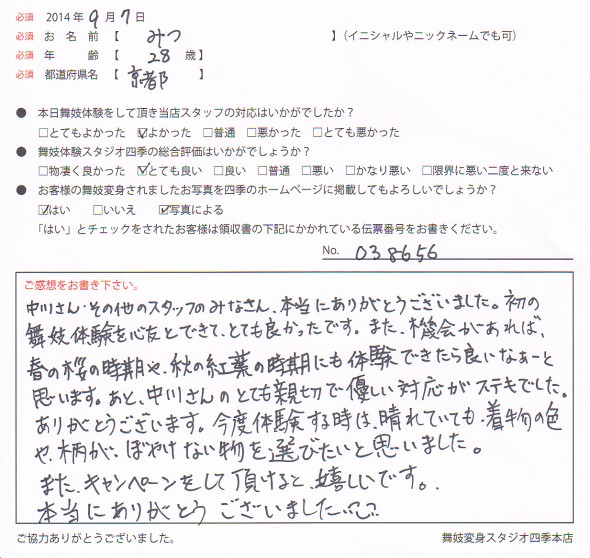 必須 2014年 9月 7日
必須 お名前【 みつ 】（イニシャルやニックネームでも可）
必須 年齢【 28 歳】
必須 都道府県名【 京都 】
● 本日舞妓体験をして頂き当店スタッフの対応はいかがでしたか？
□とてもよかった ☑よかった □普通 □悪かった □とても悪かった
● 舞妓体験スタジオ四季の総合評価はいかがでしょうか？
□物凄く良かった ☑とても良い □良い □普通 □悪い □かなり悪い □限界に悪い二度と来ない
● お客様の舞妓変身されましたお写真を四季のホームページに掲載してもよろしいでしょうか？
☑はい □いいえ ☑写真による
「はい」とチェックをされたお客様は領収書の下記にかかれている伝票番号をお書きください。
No. 038656
ご感想をお書き下さい。
中川さん・その他のスタッフのみなさん、本当にありがとうございました。初の
舞妓体験を心友とできて、とても良かったです。また、機会があれば、
春の桜の時期や、秋の紅葉の時期にも体験できたら良いなぁーと
思います。あと、中川さんのとても親切で優しい対応がステキでした。
ありがとうございます。今度体験する時は、晴れていても、着物の色
や、柄が、ぼやけない物を選びたいと思いました。
また、キャンペーンをして頂けると、嬉しいです。
本当にありがとうございました
ご協力ありがとうございました。
舞妓変身スタジオ四季本店